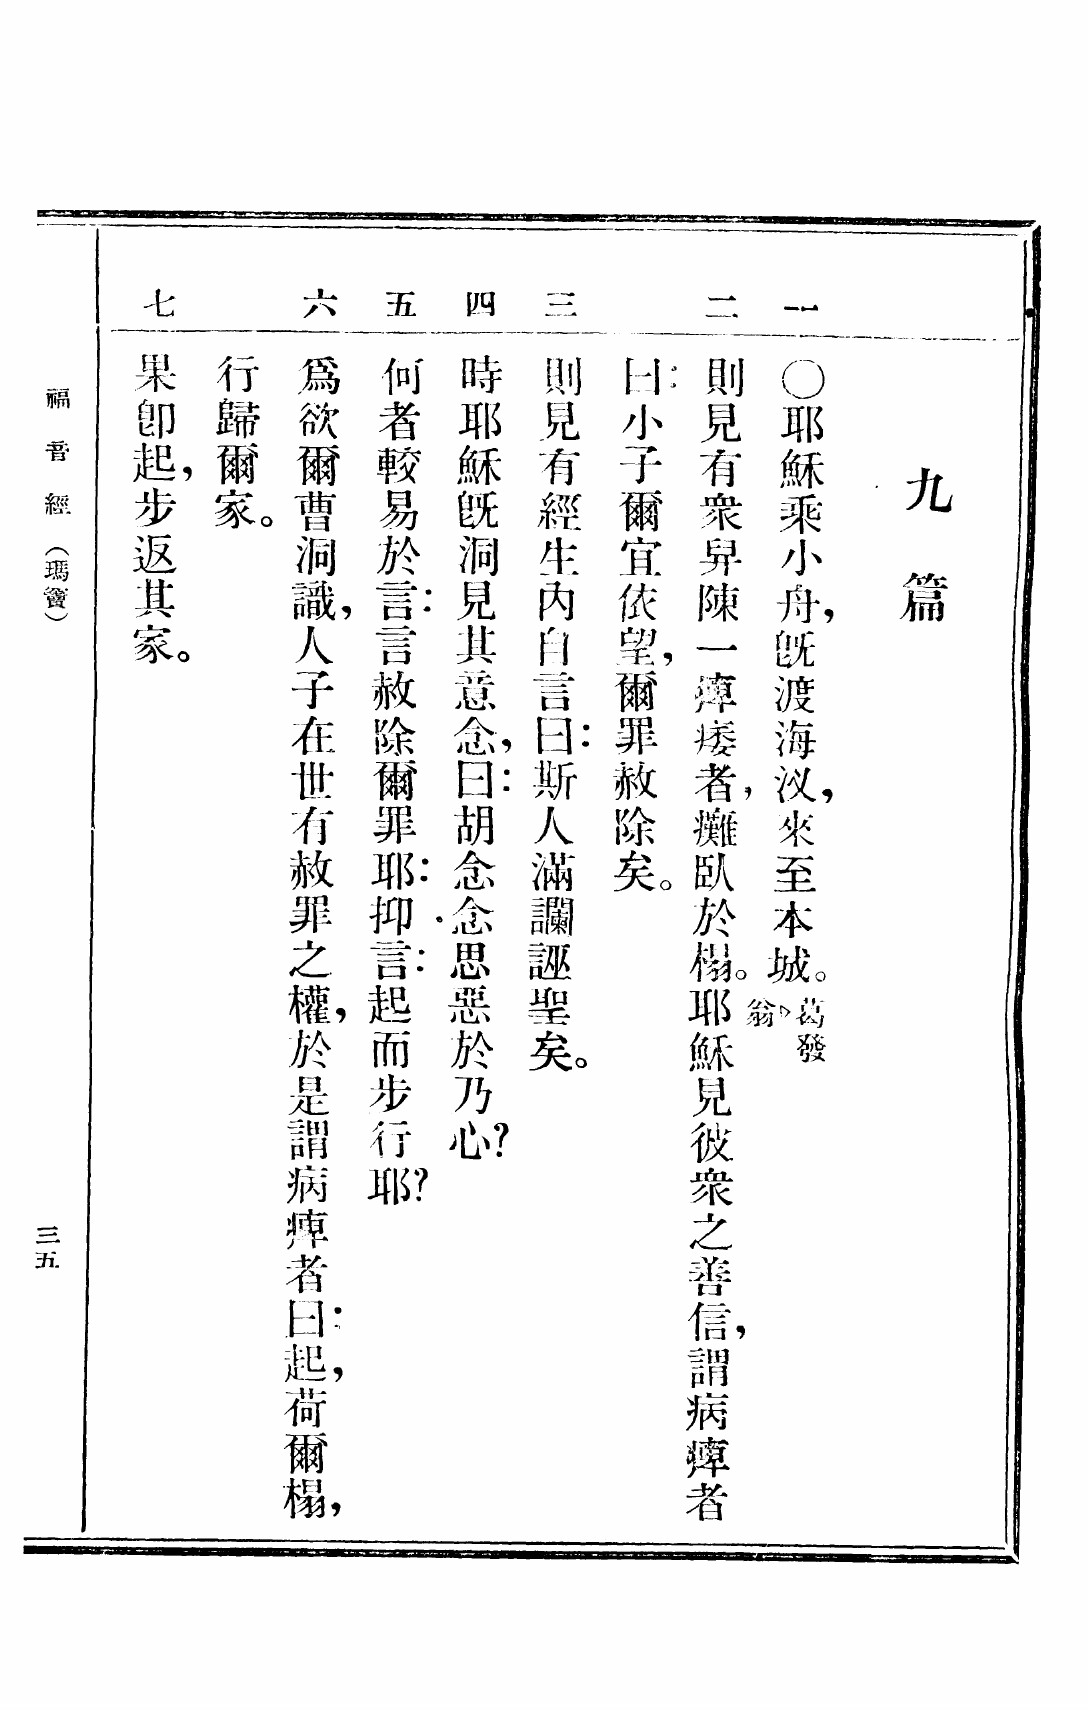 九篇
一
○耶穌乘小舟，旣渡海汊，來至本城。葛發翁
二
則見有衆舁陳一痺痿者，癱臥於榻。耶穌見彼衆之善信，謂病痺者
曰：小子爾宜依望，爾罪赦除矣。
三
則見有經生內自言曰：斯人滿讕誣聖矣。
四
時耶穌旣洞見其意念，曰：胡念念思惡於乃心？
五
何者較易於言：言赦除爾罪耶：抑言：起而步行耶？
六
爲欲爾曹洞識，人子在世有赦罪之權，於是謂病痺者曰：起，荷爾榻，
行歸爾家。
七
果卽起，步返其家。
福音經（瑪竇）
三五